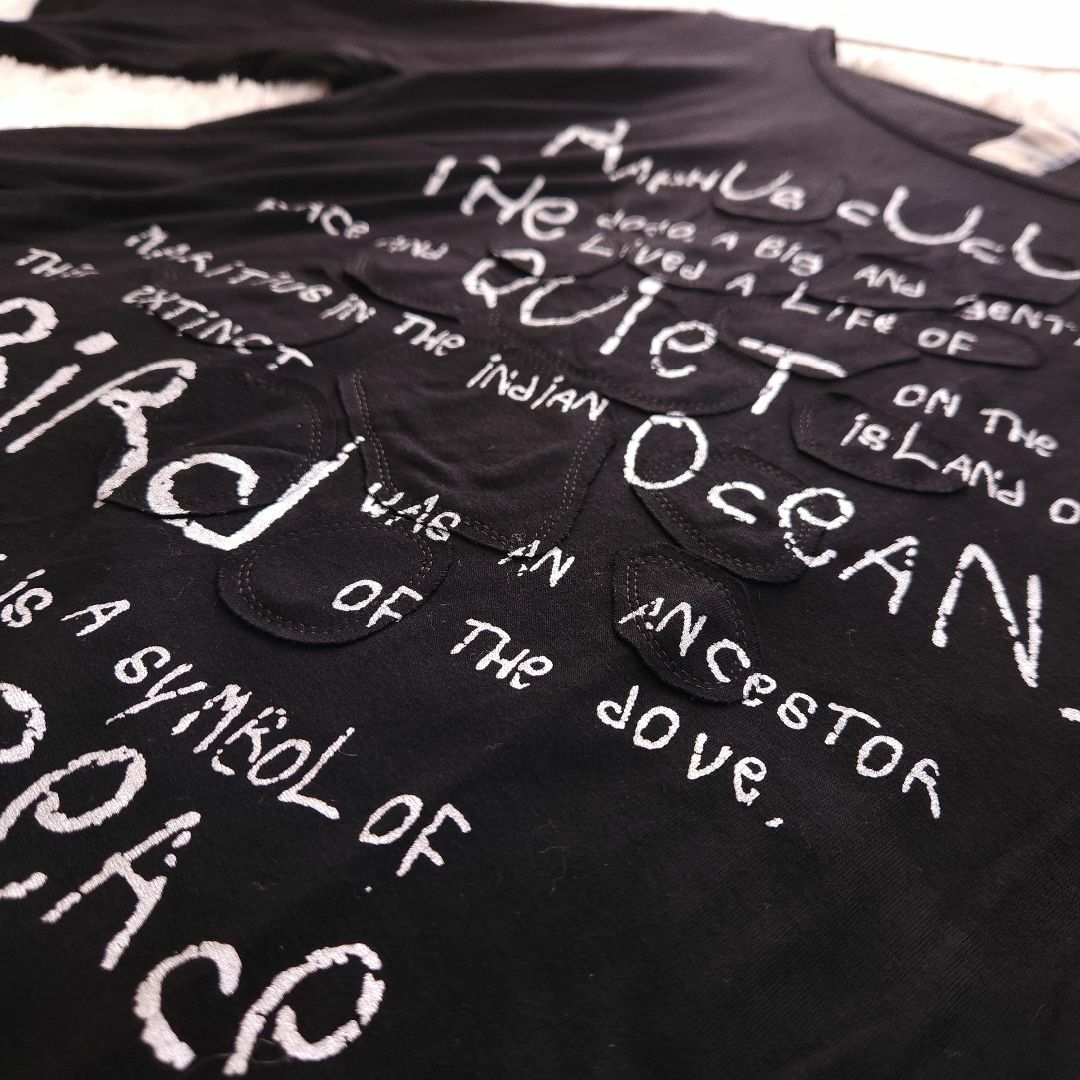 CUCU
THE dodo A BIG AND GENT
LIVED A LIFE OF
AND QUIET ON THE
ISLAND O
MAURITIUS IN THE INDIAN OCEAN
THIS EXTINCT
BIRD WAS AN ANCESTOR
OF THE dOVE,
IS A SYMBOL OF